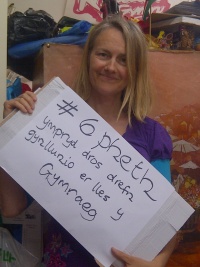 # 6 pheth
ympryd dros drefn
gynllunio er lles y
Gymraeg